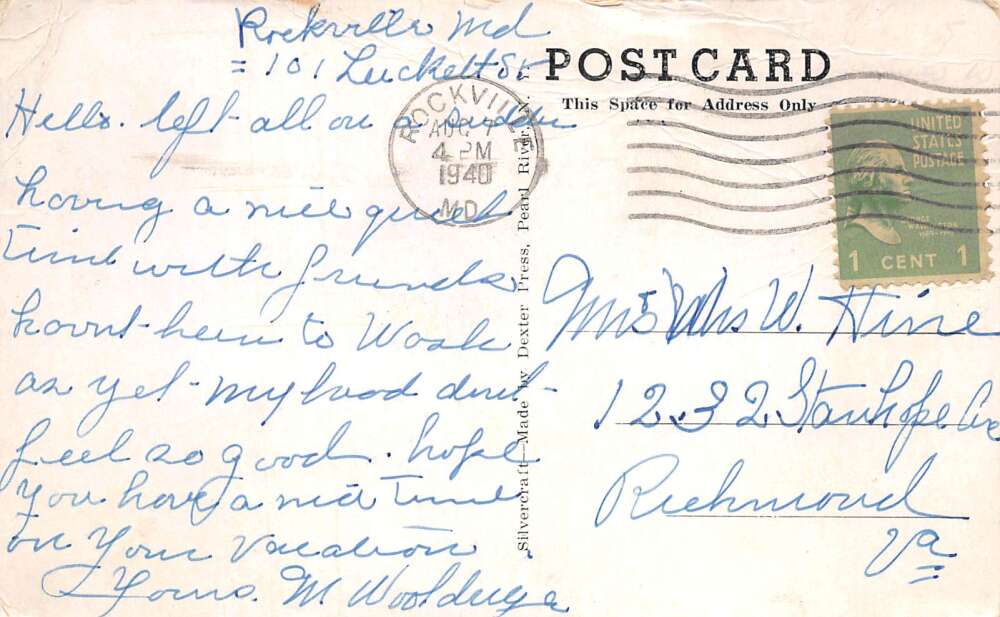 Rockville Md
= 101 Luckett St
Hello. left all on a sudden
having a nice quiet
time with friends
havnt been to Wash
as yet - my head dont
feel so good. hope
you have a nice time
on your vacation
Yours. M. Wooldridge
POST CARD
This Space for Address Only
ROCKVILLE
AUG 7
4 PM
1940
MD.
UNITED
STATES
POSTAGE
1 CENT 1
Silvercraft—Made by Dexter Press, Pearl River, N.
W. Hine
1232 Stanhope Ave
Richmond
Va